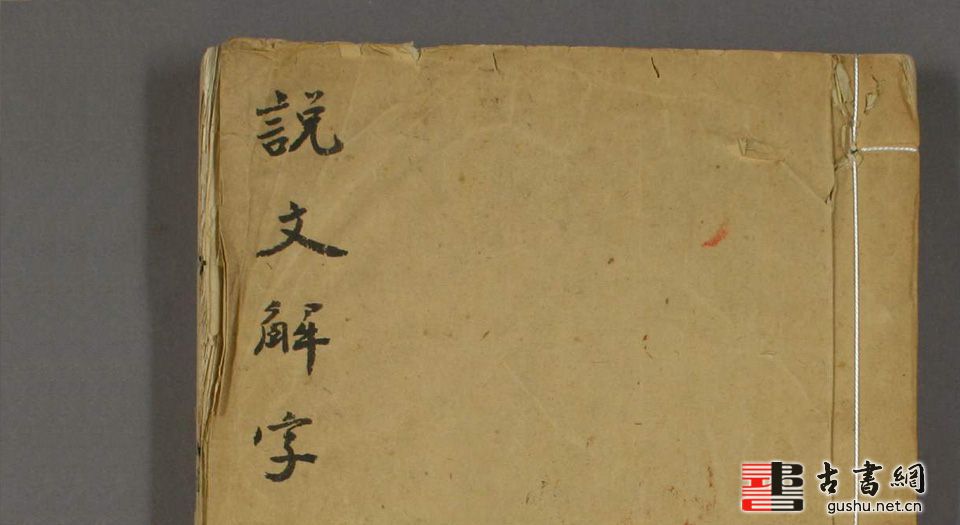 說文解字
古書網
gushu.net.cn